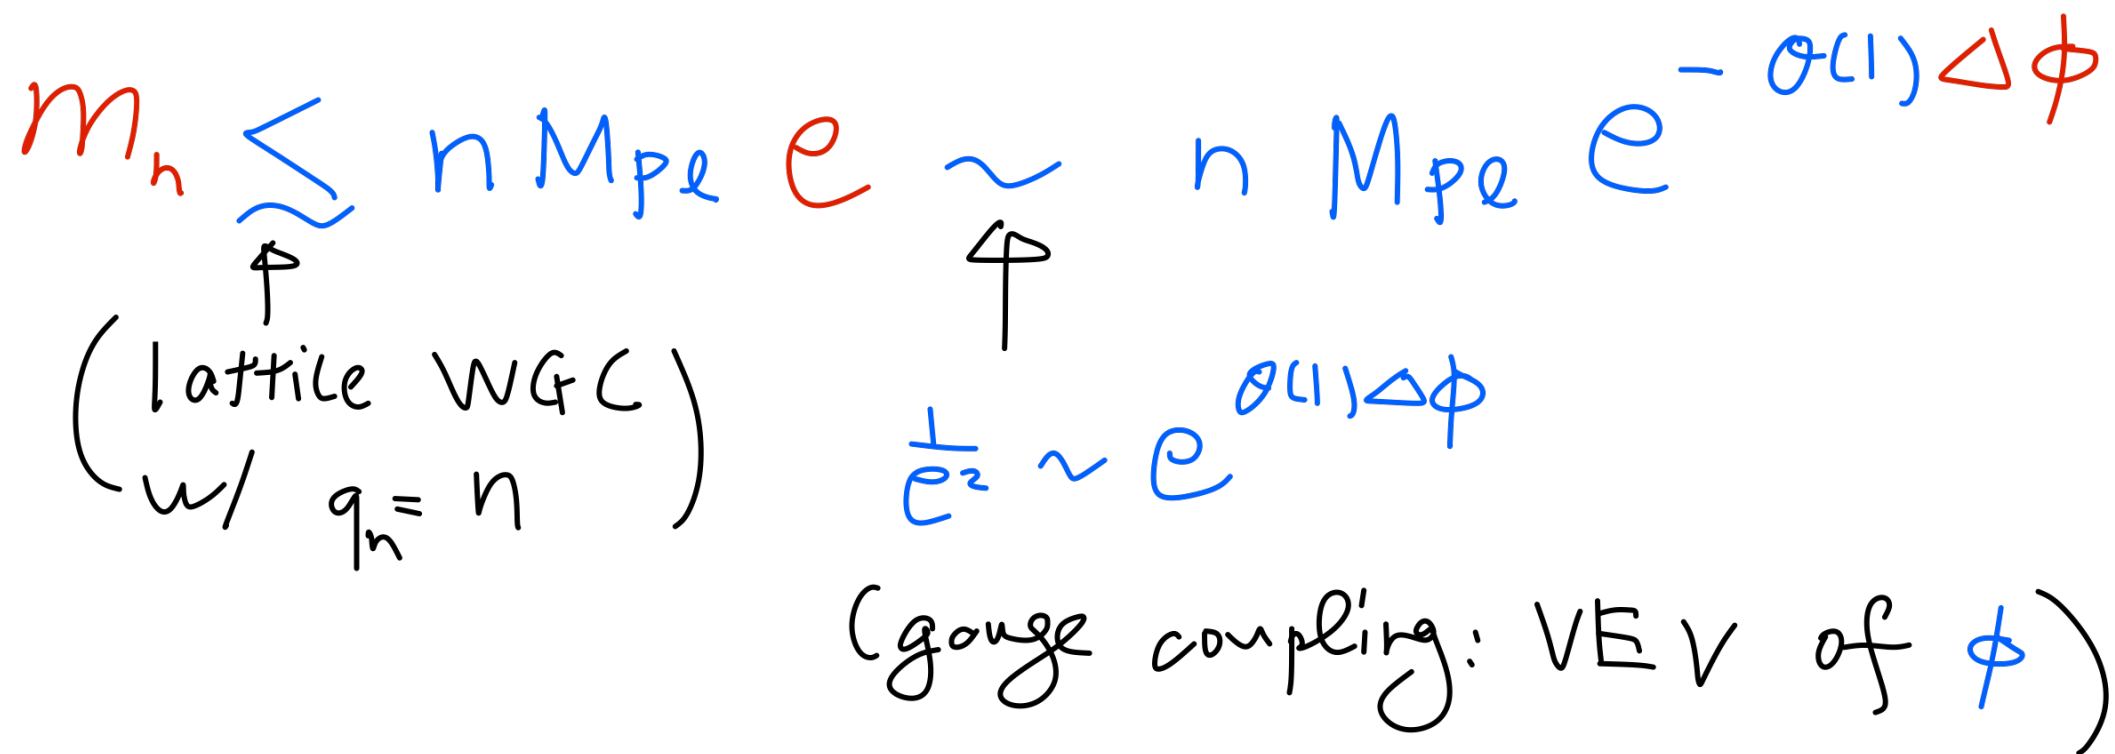 mₙ ≲ n Mpl e ~ n Mpl e^{- O(1) Δϕ}
(lattice WGC
w/ qₙ = n)
1/e² ~ e^{O(1)Δϕ}
(gauge coupling: VEV of ϕ)